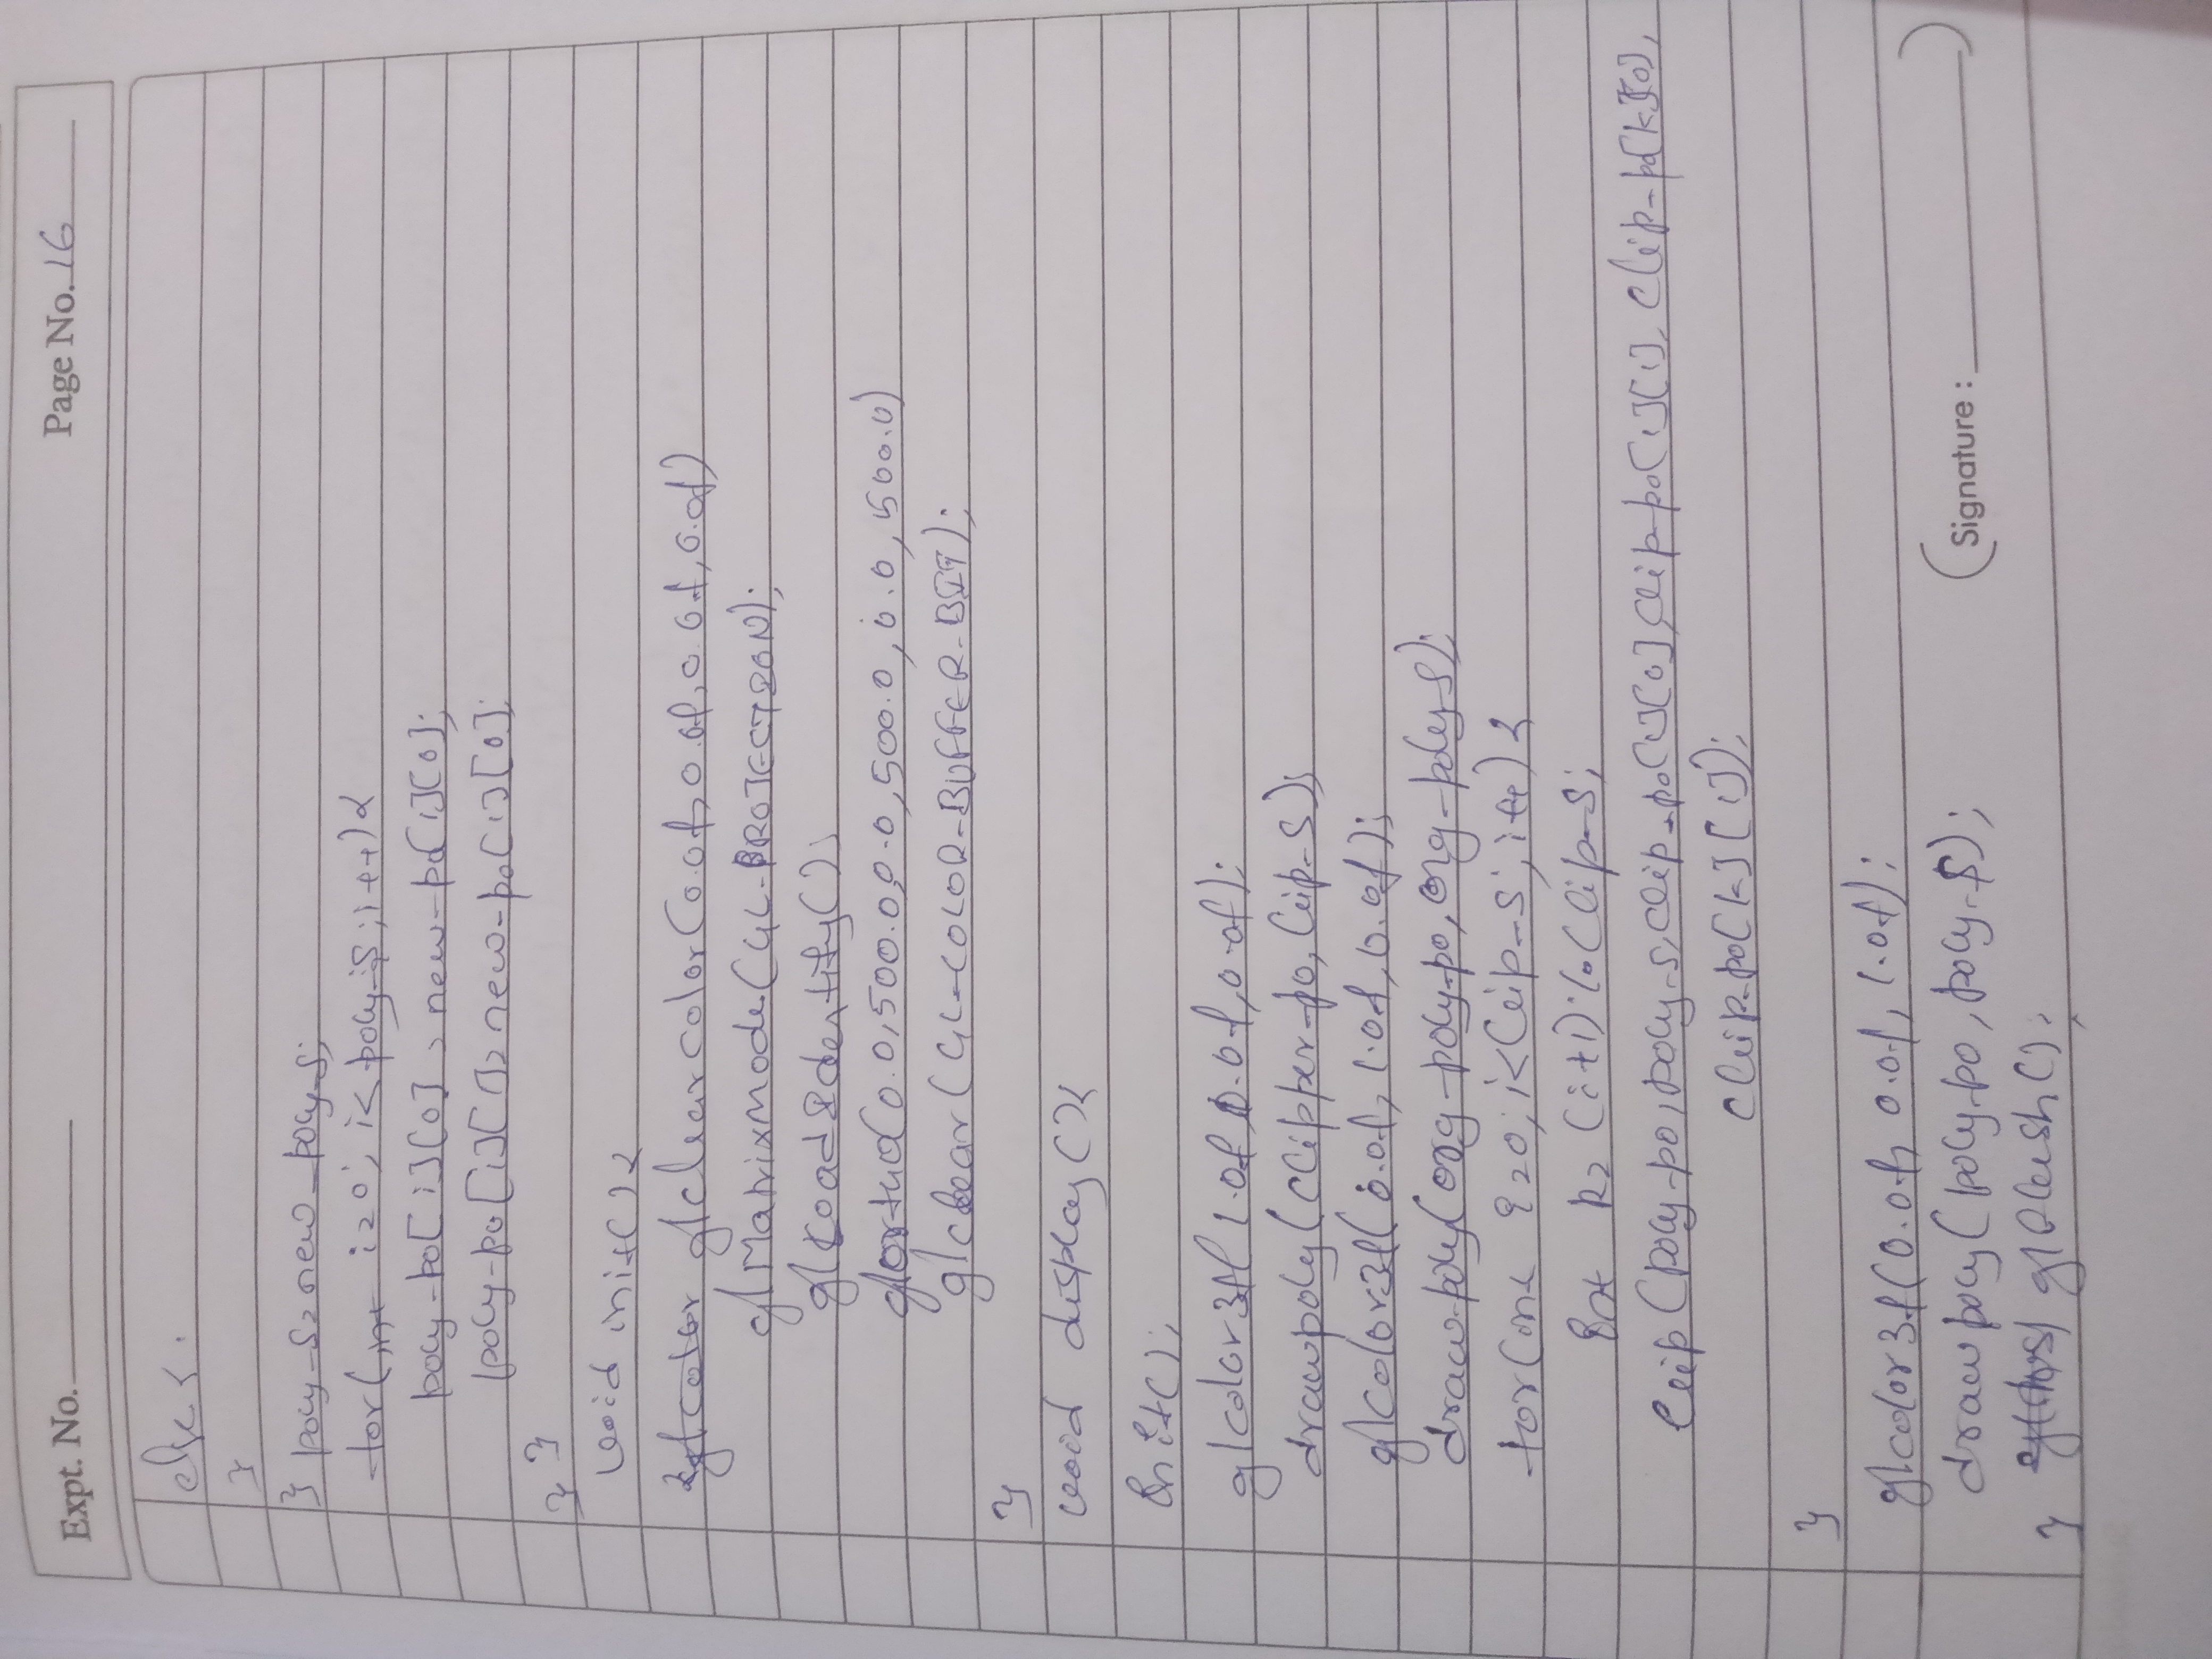 Expt. No. Page No. 16
else {
}
} poly-s = new_poly-s;
for(int i=0; i<poly-s; i++){
poly-po[i][0] = new-po[i][0];
poly-po[i][1] = new-po[i][0];
} }
void init(){
glclearcolor(0.0f, 0.0f, 0.0f, 0.0f)
glMatrixMode(GL-PROJECTION);
glLoadIdentity();
glortho(0.0, 500.0, 0.0, 500.0, 0.0, 500.0)
glclear(GL-COLOR-BUFFER-BIT);
}
void display(){
Init();
glcolor3f(1.0f, 0.0f, 0.0f);
drawpoly(clipper-po, clip-s);
glcolor3f(0.0f, 1.0f, 0.0f);
draw-poly(org-poly-po, org-poly-s);
for(int i=0; i<clip-s; i++){
Int k= (i+1)%clip-s;
clip(poly-po, poly-s, clip-po[i][0], clip-po[i][1], clip-po[k][0],
clip-po[k][1]);
}
glcolor3f(0.0f, 0.0f, 1.0f);
drawpoly(poly-po, poly-s);
} glflush();
(Signature : )